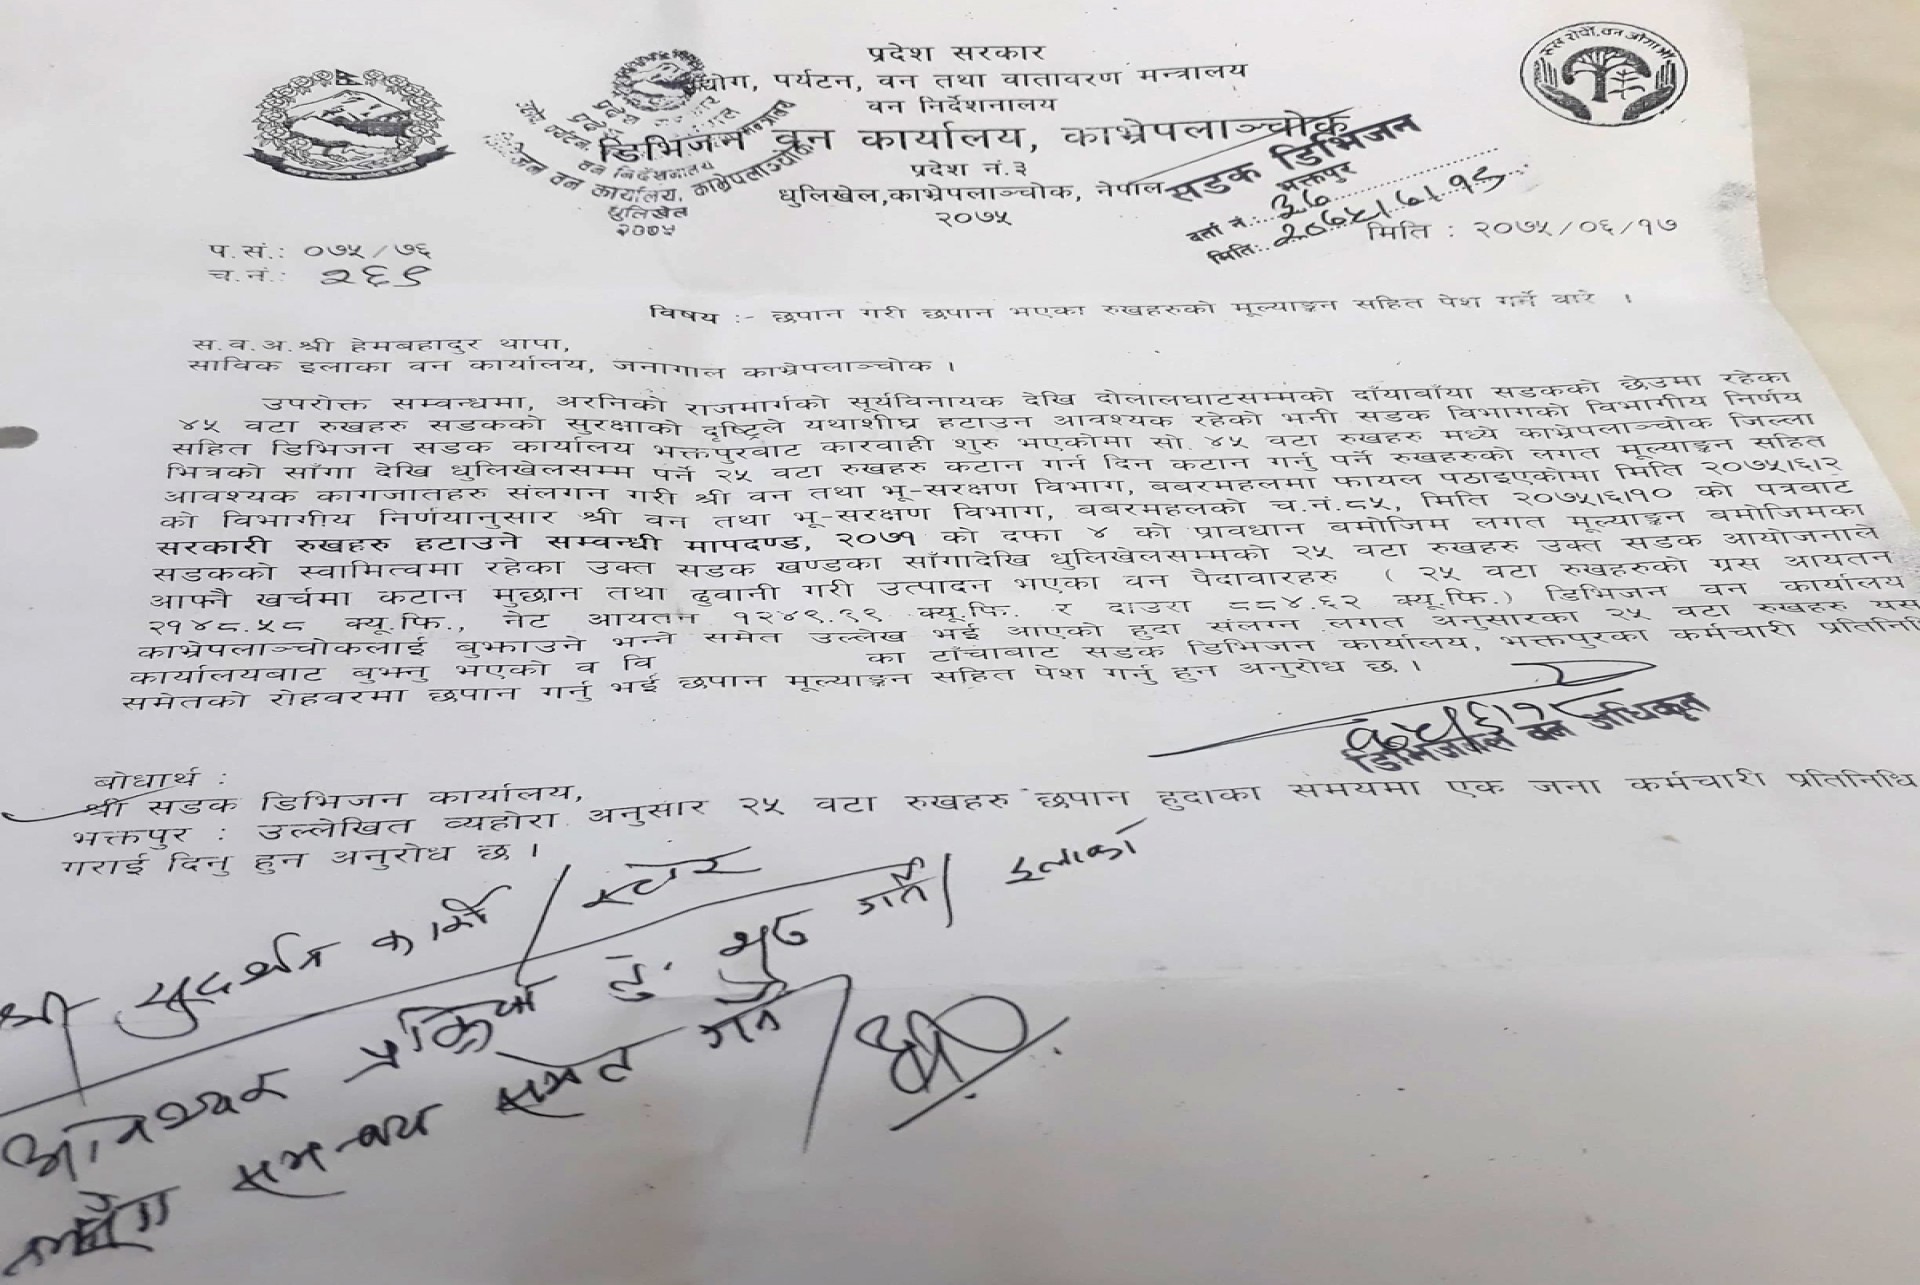 प्रदेश सरकार
उद्योग, पर्यटन, वन तथा वातावरण मन्त्रालय
वन निर्देशनालय
डिभिजन वन कार्यालय, काभ्रेपलाञ्चोक
प्रदेश नं.३
धुलिखेल,काभ्रेपलाञ्चोक, नेपाल
२०७५
वन निर्देशनालय
वन कार्यालय, काभ्रेपलाञ्चोक
धुलिखेल
२०७५
सडक डिभिजन
भक्तपुर
दर्ता नं.:
मिति:
प.सं.: ०७५/७६
मिति : २०७५/०६/१७
च.नं.: २६९
विषय :- छपान गरी छपान भएका रुखहरुको मूल्याङ्कन सहित पेश गर्ने बारे ।
स.व.अ.श्री हेमबहादुर थापा,
साविक इलाका वन कार्यालय, जनागाल काभ्रेपलाञ्चोक ।
उपरोक्त सम्वन्धमा, अरनिको राजमार्गको सूर्यविनायक देखि दोलालघाटसम्मको दाँयाबाँया सडकको छेउमा रहेका
४५ वटा रुखहरु सडकको सुरक्षाको दृष्ट्रिले यथाशीघ्र हटाउन आवश्यक रहेको भनी सडक विभागको विभागीय निर्णय
सहित डिभिजन सडक कार्यालय भक्तपुरबाट कारवाही शुरु भएकोमा सो. ४५ वटा रुखहरु मध्ये काभ्रेपलाञ्चोक जिल्ला
भित्रको साँगा देखि धुलिखेलसम्म पर्ने २५ वटा रुखहरु कटान गर्न दिन कटान गर्नु पर्ने रुखहरुको लगत मूल्याङ्कन सहित
आवश्यक कागजातहरु संलगन गरी श्री वन तथा भू-सरक्षण विभाग, बबरमहलमा फायल पठाइएकोमा मिति २०७५।६।२
को विभागीय निर्णयानुसार श्री वन तथा भू-सरक्षण विभाग, बबरमहलको च.नं.८५, मिति २०७५।६।१० को पत्रबाट
सरकारी रुखहरु हटाउने सम्वन्धी मापदण्ड, २०७१ को दफा ४ को प्रावधान बमोजिम लगत मूल्याङ्कन बमोजिमका
सडकको स्वामित्वमा रहेका उक्त सडक खण्डका साँगादेखि धुलिखेलसम्मको २५ वटा रुखहरु उक्त सडक आयोजनाले
आफ्नै खर्चमा कटान मुछान तथा ढुवानी गरी उत्पादन भएका वन पैदावारहरु ( २५ वटा रुखहरुको ग्रस आयतन
२१४८.५८ क्यू.फि., नेट आयतन १२४९.९९ क्यू.फि. र दाउरा ८८४.६२ क्यू.फि.) डिभिजन वन कार्यालय
काभ्रेपलाञ्चोकलाई बुझाउने भन्ने समेत उल्लेख भई आएको हुदा संलग्न लगत अनुसारका २५ वटा रुखहरु यस
कार्यालयबाट बुझ्नु भएको व वि का टाँचाबाट सडक डिभिजन कार्यालय, भक्तपुरका कर्मचारी प्रतिनिधि
समेतको रोहवरमा छपान गर्नु भई छपान मूल्याङ्कन सहित पेश गर्नु हुन अनुरोध छ ।
डिभिजनल वन अधिकृत
बोधार्थ :
श्री सडक डिभिजन कार्यालय,
भक्तपुर : उल्लेखित व्यहोरा अनुसार २५ वटा रुखहरु छपान हुदाका समयमा एक जना कर्मचारी प्रतिनिधि
गराई दिनु हुन अनुरोध छ ।
श्री सुदर्शन कार्की
आवश्यक प्रक्रिया गर्ने इलाका
समन्वय समेत गर्ने